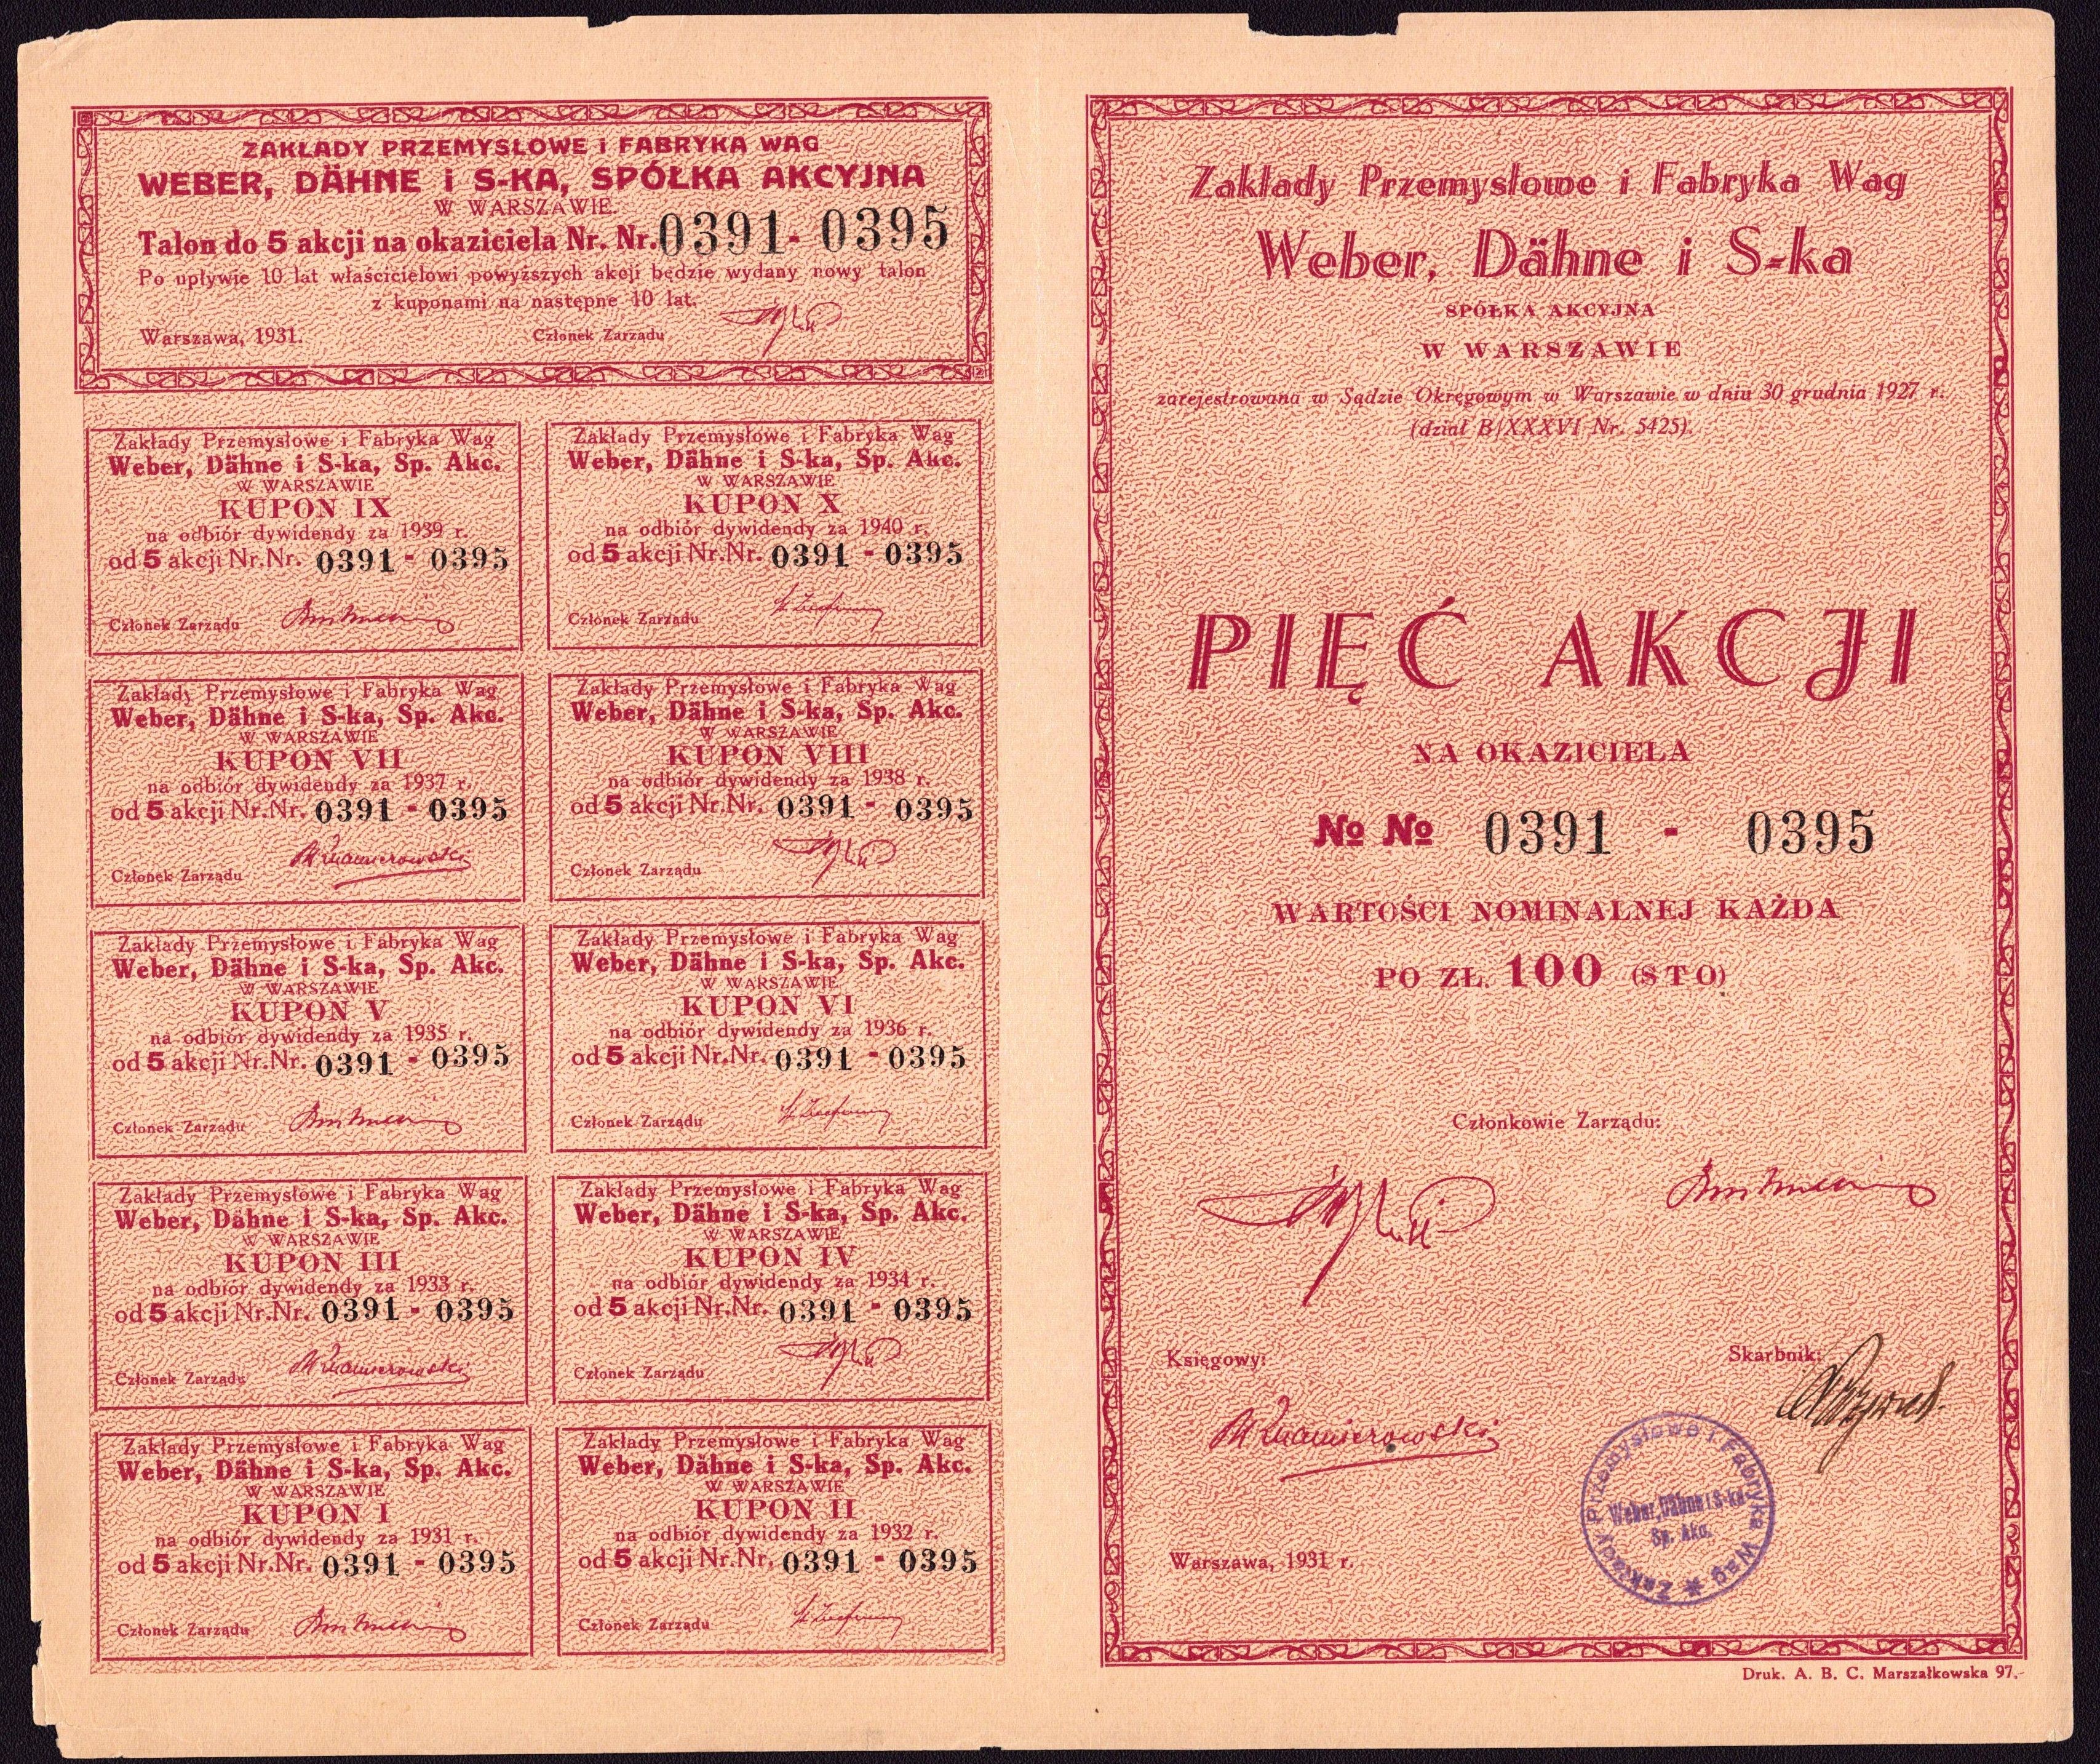 ZAKŁADY PRZEMYSŁOWE i FABRYKA WAG
WEBER, DÄHNE i S-KA, SPÓŁKA AKCYJNA
W WARSZAWIE.
Talon do 5 akcji na okaziciela Nr. Nr. 0391 - 0395
Po upływie 10 lat właścicielowi powyższych akcji będzie wydany nowy talon
z kuponami na następne 10 lat.
Warszawa, 1931. Członek Zarządu
Zakłady Przemysłowe i Fabryka Wag
Weber, Dähne i S-ka, Sp. Akc.
W WARSZAWIE
KUPON IX
na odbiór dywidendy za 1939 r.
od 5 akcji Nr.Nr. 0391 - 0395
Członek Zarządu
Zakłady Przemysłowe i Fabryka Wag
Weber, Dähne i S-ka, Sp. Akc.
W WARSZAWIE
KUPON X
na odbiór dywidendy za 1940 r.
od 5 akcji Nr.Nr. 0391 - 0395
Członek Zarządu
Zakłady Przemysłowe i Fabryka Wag
Weber, Dähne i S-ka, Sp. Akc.
W WARSZAWIE
KUPON VII
na odbiór dywidendy za 1937 r.
od 5 akcji Nr.Nr. 0391 - 0395
Członek Zarządu
Zakłady Przemysłowe i Fabryka Wag
Weber, Dähne i S-ka, Sp. Akc.
W WARSZAWIE
KUPON VIII
na odbiór dywidendy za 1938 r.
od 5 akcji Nr.Nr. 0391 - 0395
Członek Zarządu
Zakłady Przemysłowe i Fabryka Wag
Weber, Dähne i S-ka, Sp. Akc.
W WARSZAWIE
KUPON V
na odbiór dywidendy za 1935 r.
od 5 akcji Nr.Nr. 0391 - 0395
Członek Zarządu
Zakłady Przemysłowe i Fabryka Wag
Weber, Dähne i S-ka, Sp. Akc.
W WARSZAWIE
KUPON VI
na odbiór dywidendy za 1936 r.
od 5 akcji Nr.Nr. 0391 - 0395
Członek Zarządu
Zakłady Przemysłowe i Fabryka Wag
Weber, Dähne i S-ka, Sp. Akc.
W WARSZAWIE
KUPON III
na odbiór dywidendy za 1933 r.
od 5 akcji Nr.Nr. 0391 - 0395
Członek Zarządu
Zakłady Przemysłowe i Fabryka Wag
Weber, Dähne i S-ka, Sp. Akc.
W WARSZAWIE
KUPON IV
na odbiór dywidendy za 1934 r.
od 5 akcji Nr.Nr. 0391 - 0395
Członek Zarządu
Zakłady Przemysłowe i Fabryka Wag
Weber, Dähne i S-ka, Sp. Akc.
W WARSZAWIE
KUPON I
na odbiór dywidendy za 1931 r.
od 5 akcji Nr.Nr. 0391 - 0395
Członek Zarządu
Zakłady Przemysłowe i Fabryka Wag
Weber, Dähne i S-ka, Sp. Akc.
W WARSZAWIE
KUPON II
na odbiór dywidendy za 1932 r.
od 5 akcji Nr.Nr. 0391 - 0395
Członek Zarządu
Zakłady Przemysłowe i Fabryka Wag
Weber, Dähne i S-ka
SPÓŁKA AKCYJNA
W WARSZAWIE
zarejestrowana w Sądzie Okręgowym w Warszawie w dniu 30 grudnia 1927 r.
(dział B/XXXVI Nr. 5425).
PIĘĆ AKCJI
NA OKAZICIELA
No No 0391 - 0395
WARTOŚCI NOMINALNEJ KAŻDA
PO ZŁ. 100 (STO)
Członkowie Zarządu:
Księgowy: Skarbnik:
Zakłady Przemysłowe i Fabryka Wag
Weber, Dähne i S-ka
Sp. Akc.
Warszawa, 1931 r.
Druk. A. B. C. Marszałkowska 97.-